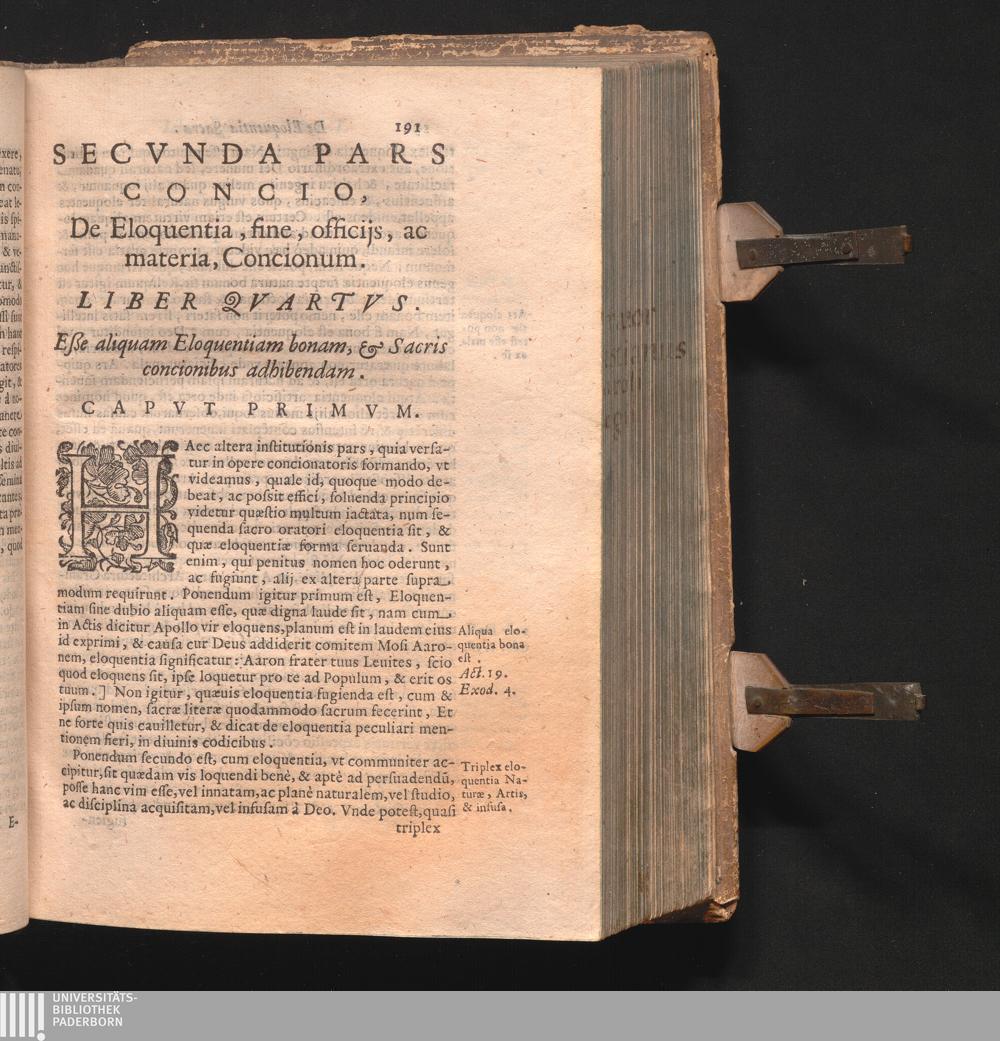 191
SECVNDA PARS
CONCIO,
De Eloquentia, fine, officijs, ac
materia, Concionum.
LIBER QVARTVS.
Eſſe aliquam Eloquentiam bonam, & Sacris
concionibus adhibendam.
CAPVT PRIMVM.
HAec altera inſtitutionis pars, quia verſa-
tur in opere concionatoris formando, vt
videamus, quale id, quoque modo de-
beat, ac poſsit effici, ſoluenda principio
videtur quæſtio multum iactata, num ſe-
quenda ſacro oratori eloquentia ſit, &
quæ eloquentiæ forma ſeruanda. Sunt
enim, qui penitus nomen hoc oderunt,
ac fugiunt, alij ex altera parte ſupra
modum requirunt. Ponendum igitur primum eſt, Eloquen-
tiam ſine dubio aliquam eſſe, quæ digna laude ſit, nam cum
in Actis dicitur Apollo vir eloquens, planum eſt in laudem eius
id exprimi, & cauſa cur Deus addiderit comitem Moſi Aaro-
nem, eloquentia ſignificatur: Aaron frater tuus Leuites, ſcio
quod eloquens ſit, ipſe loquetur pro te ad Populum, & erit os
tuum.] Non igitur, quæuis eloquentia fugienda eſt, cum &
ipſum nomen, ſacræ literæ quodammodo ſacrum fecerint, Et
ne forte quis cauilletur, & dicat de eloquentia peculiari men-
tionem fieri, in diuinis codicibus.
Aliqua elo-
quentia bona
eſt.
Act. 19.
Exod. 4.
Ponendum ſecundo eſt, cum eloquentia, vt communiter ac-
cipitur, ſit quædam vis loquendi benè, & aptè ad perſuadendū,
poſſe hanc vim eſſe, vel innatam, ac planè naturalem, vel ſtudio,
ac diſciplina acquiſitam, vel infuſam à Deo. Vnde poteſt, quaſi
triplex
Triplex elo-
quentia Na-
turæ, Artis,
& infuſa.
E-
UNIVERSITÄTS-
BIBLIOTHEK
PADERBORN